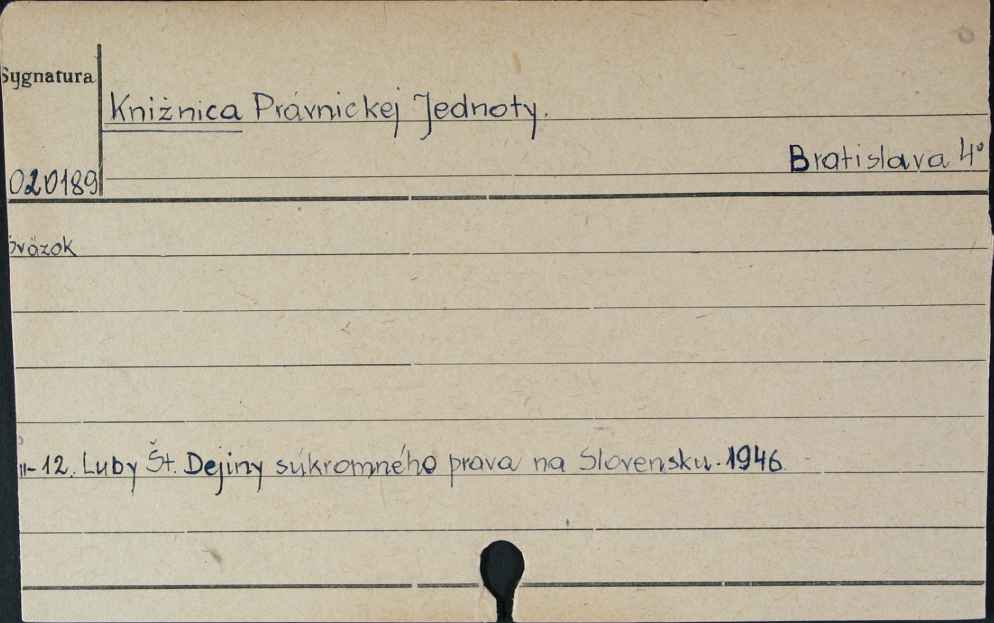 Sygnatura
Knižnica Právnickej Jednoty.
Bratislava 4°
020189
Sväzok
11-12. Luby Št. Dejiny súkromného prava na Slovensku. 1946